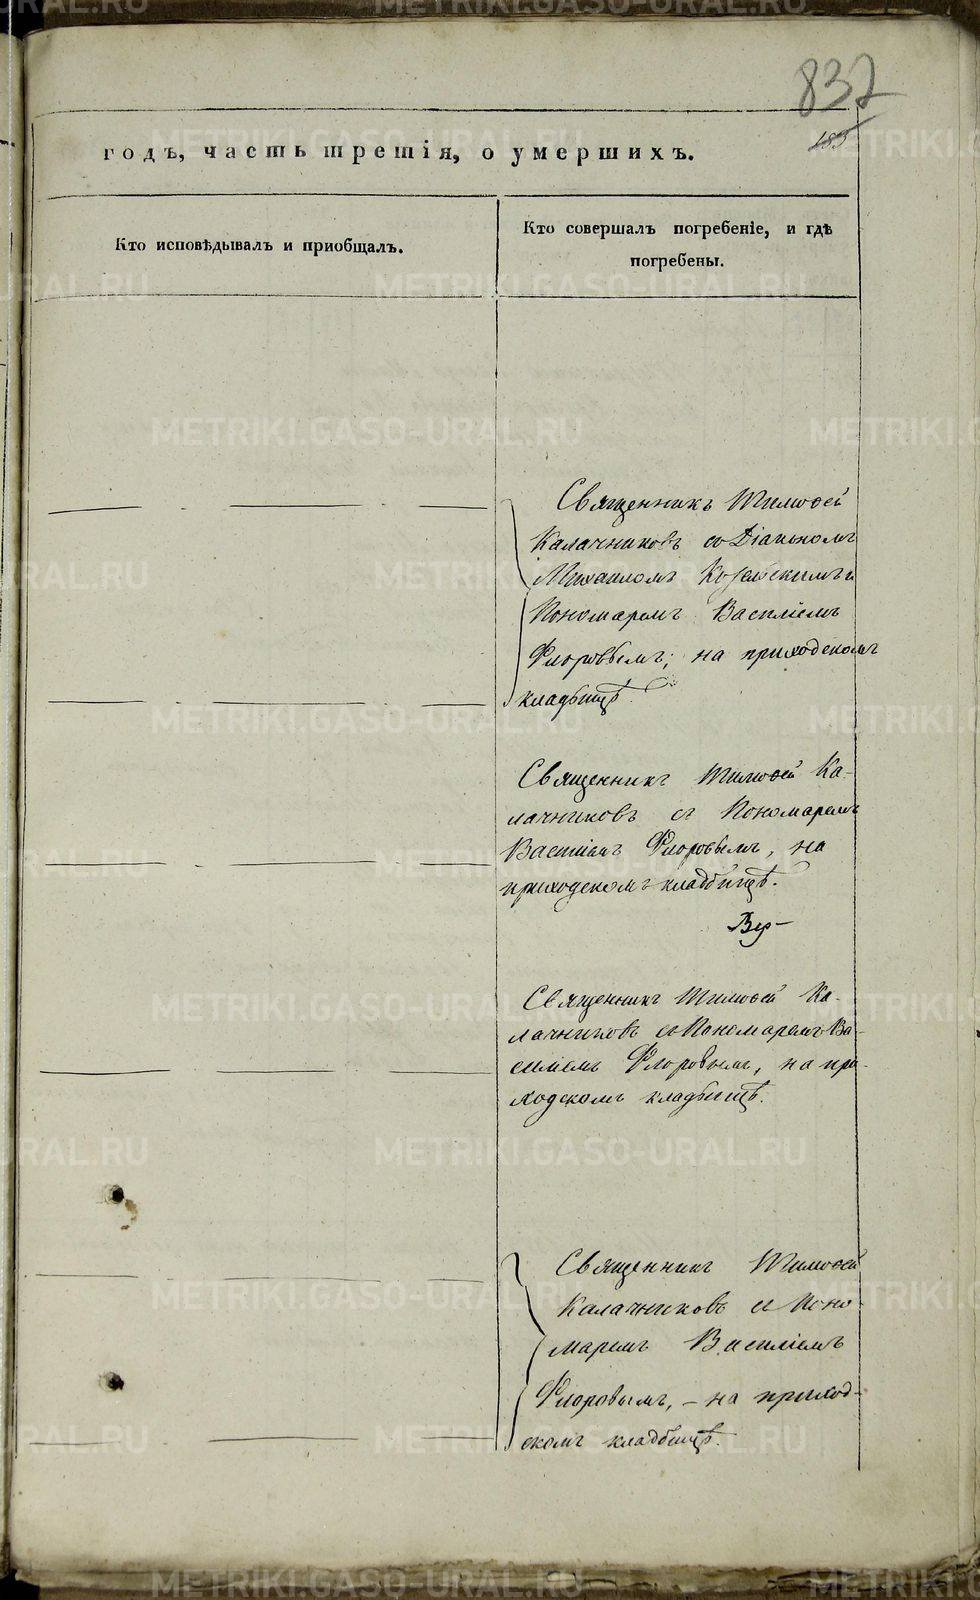 837
185
годъ, часть третія, о умершихъ.
Кто исповѣдывалъ и пріобщалъ.
Кто совершалъ погребеніе, и гдѣ
погребены.
Священникъ Тимофей
Калачниковъ съ Діакономъ
Михаиломъ Козельскимъ и
Пономаремъ Василіемъ
Флоровымъ; на приходскомъ
кладбищѣ.
Священникъ Тимофей Ка-
лачниковъ съ Пономаремъ
Василіемъ Флоровымъ, на
приходскомъ кладбищѣ.
Священникъ Тимофей Ка-
лачниковъ съ Пономаремъ Ва-
силіемъ Флоровымъ, на при-
ходскомъ кладбищѣ.
Священникъ Тимофей
Калачниковъ съ Поно-
маремъ Василіемъ
Флоровымъ, – на приход-
скомъ кладбищѣ.
METRIKI.GASO-URAL.RU